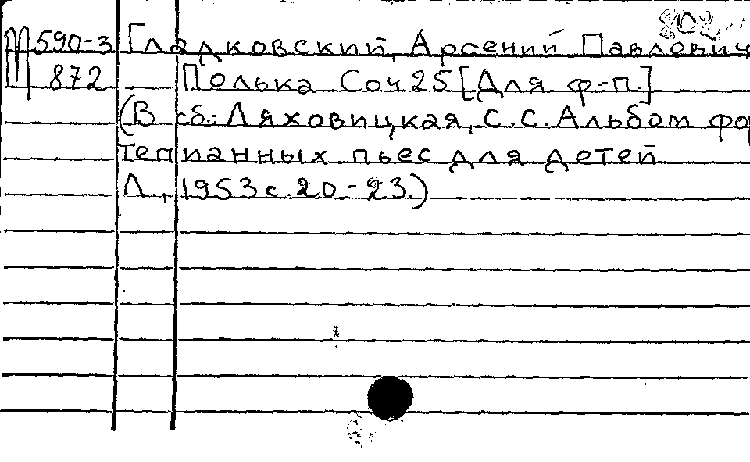 802
М 590-3 Гладковский, Арсений Павлович
872 Полька Соч 25 [Для ф-п.]
(В сб.: Ляховицкая, С.С. Альбом фор
тепианных пьес для детей
Л., 1953 с. 20.-23.)